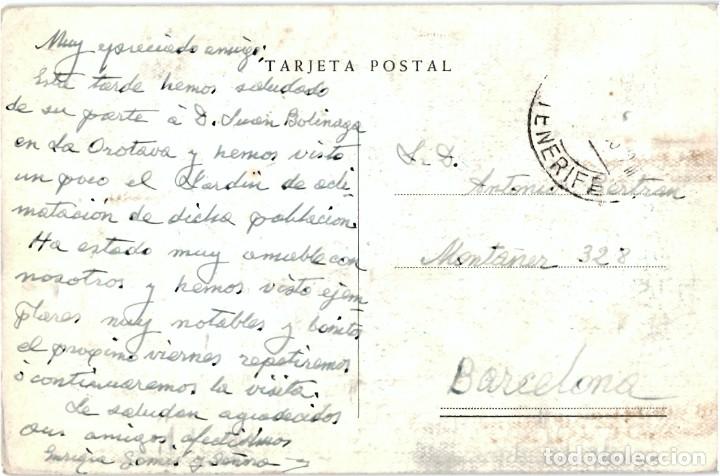 Muy apreciado amigo;
TARJETA POSTAL
Esta tarde hemos saludado
de su parte á D. Juan Bolinaga
en La Orotava y hemos visto
un poco el Jardín de acli
matación de dicha población.
Ha estado muy amable con
nosotros y hemos visto ejem
plares muy notables y bonitos
el proximo viernes repetiremos
ó continuaremos la visita.
Le saludan agradecidos
sus amigos afectísimos
Enrique y Señora
TENERIFE
S. D.
Antonio Bertran
Montañer 328
Barcelona
todocoleccion